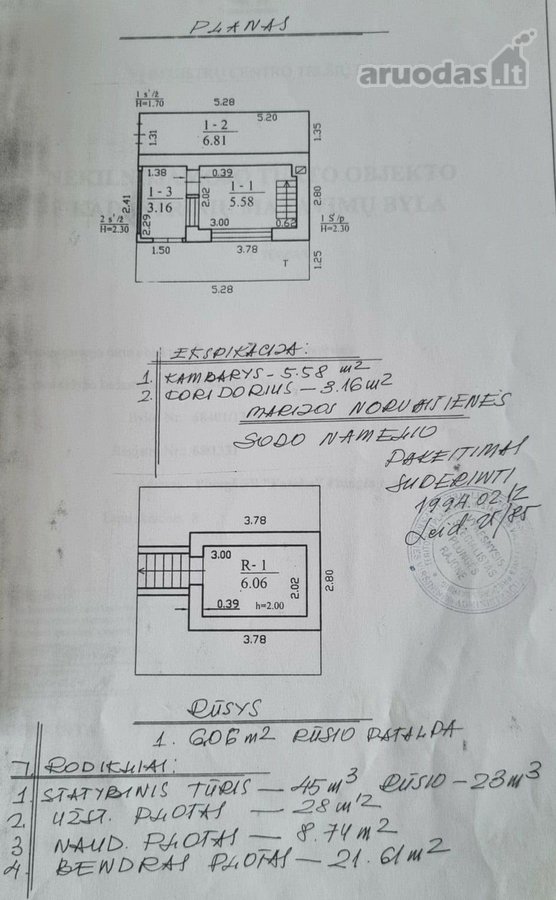 PLANAS
aruodas.lt
1 s²/ž
H=1.70
5.28
1-2
6.81
5.20
1.31
1.35
1.38
0.39
1-3
3.16
2.02
1-1
5.58
2.80
2.41
2.29
2 s²/ž
H=2.30
3.00
0.62
1 S/p
H=2.30
1.50
3.78
1.25
T
5.28
EKSPIKACIJA:
1. KAMBARYS - 5.58 m2
2. KORIDORIUS - 3.16 m2
MARIJOS NORVAIŠIENĖS
SODO NAMELIO
PAKEITIMAS
SUDERINTI
1994.02.12
Leid. 21/85
3.78
3.00
R-1
6.06
2.02
2.80
0.39
h=2.00
3.78
RŪSYS
1. 6.06 m2 RŪSIO PATALPA
7. RODIKLIAI:
1. STATYBINIS TŪRIS — 45 m3 RŪSIO - 23 m3
2. UŽST. PLOTAS — 28 m2
3 NAUD. PLOTAS — 8.74 m2
4. BENDRAS PLOTAS - 21.61 m2